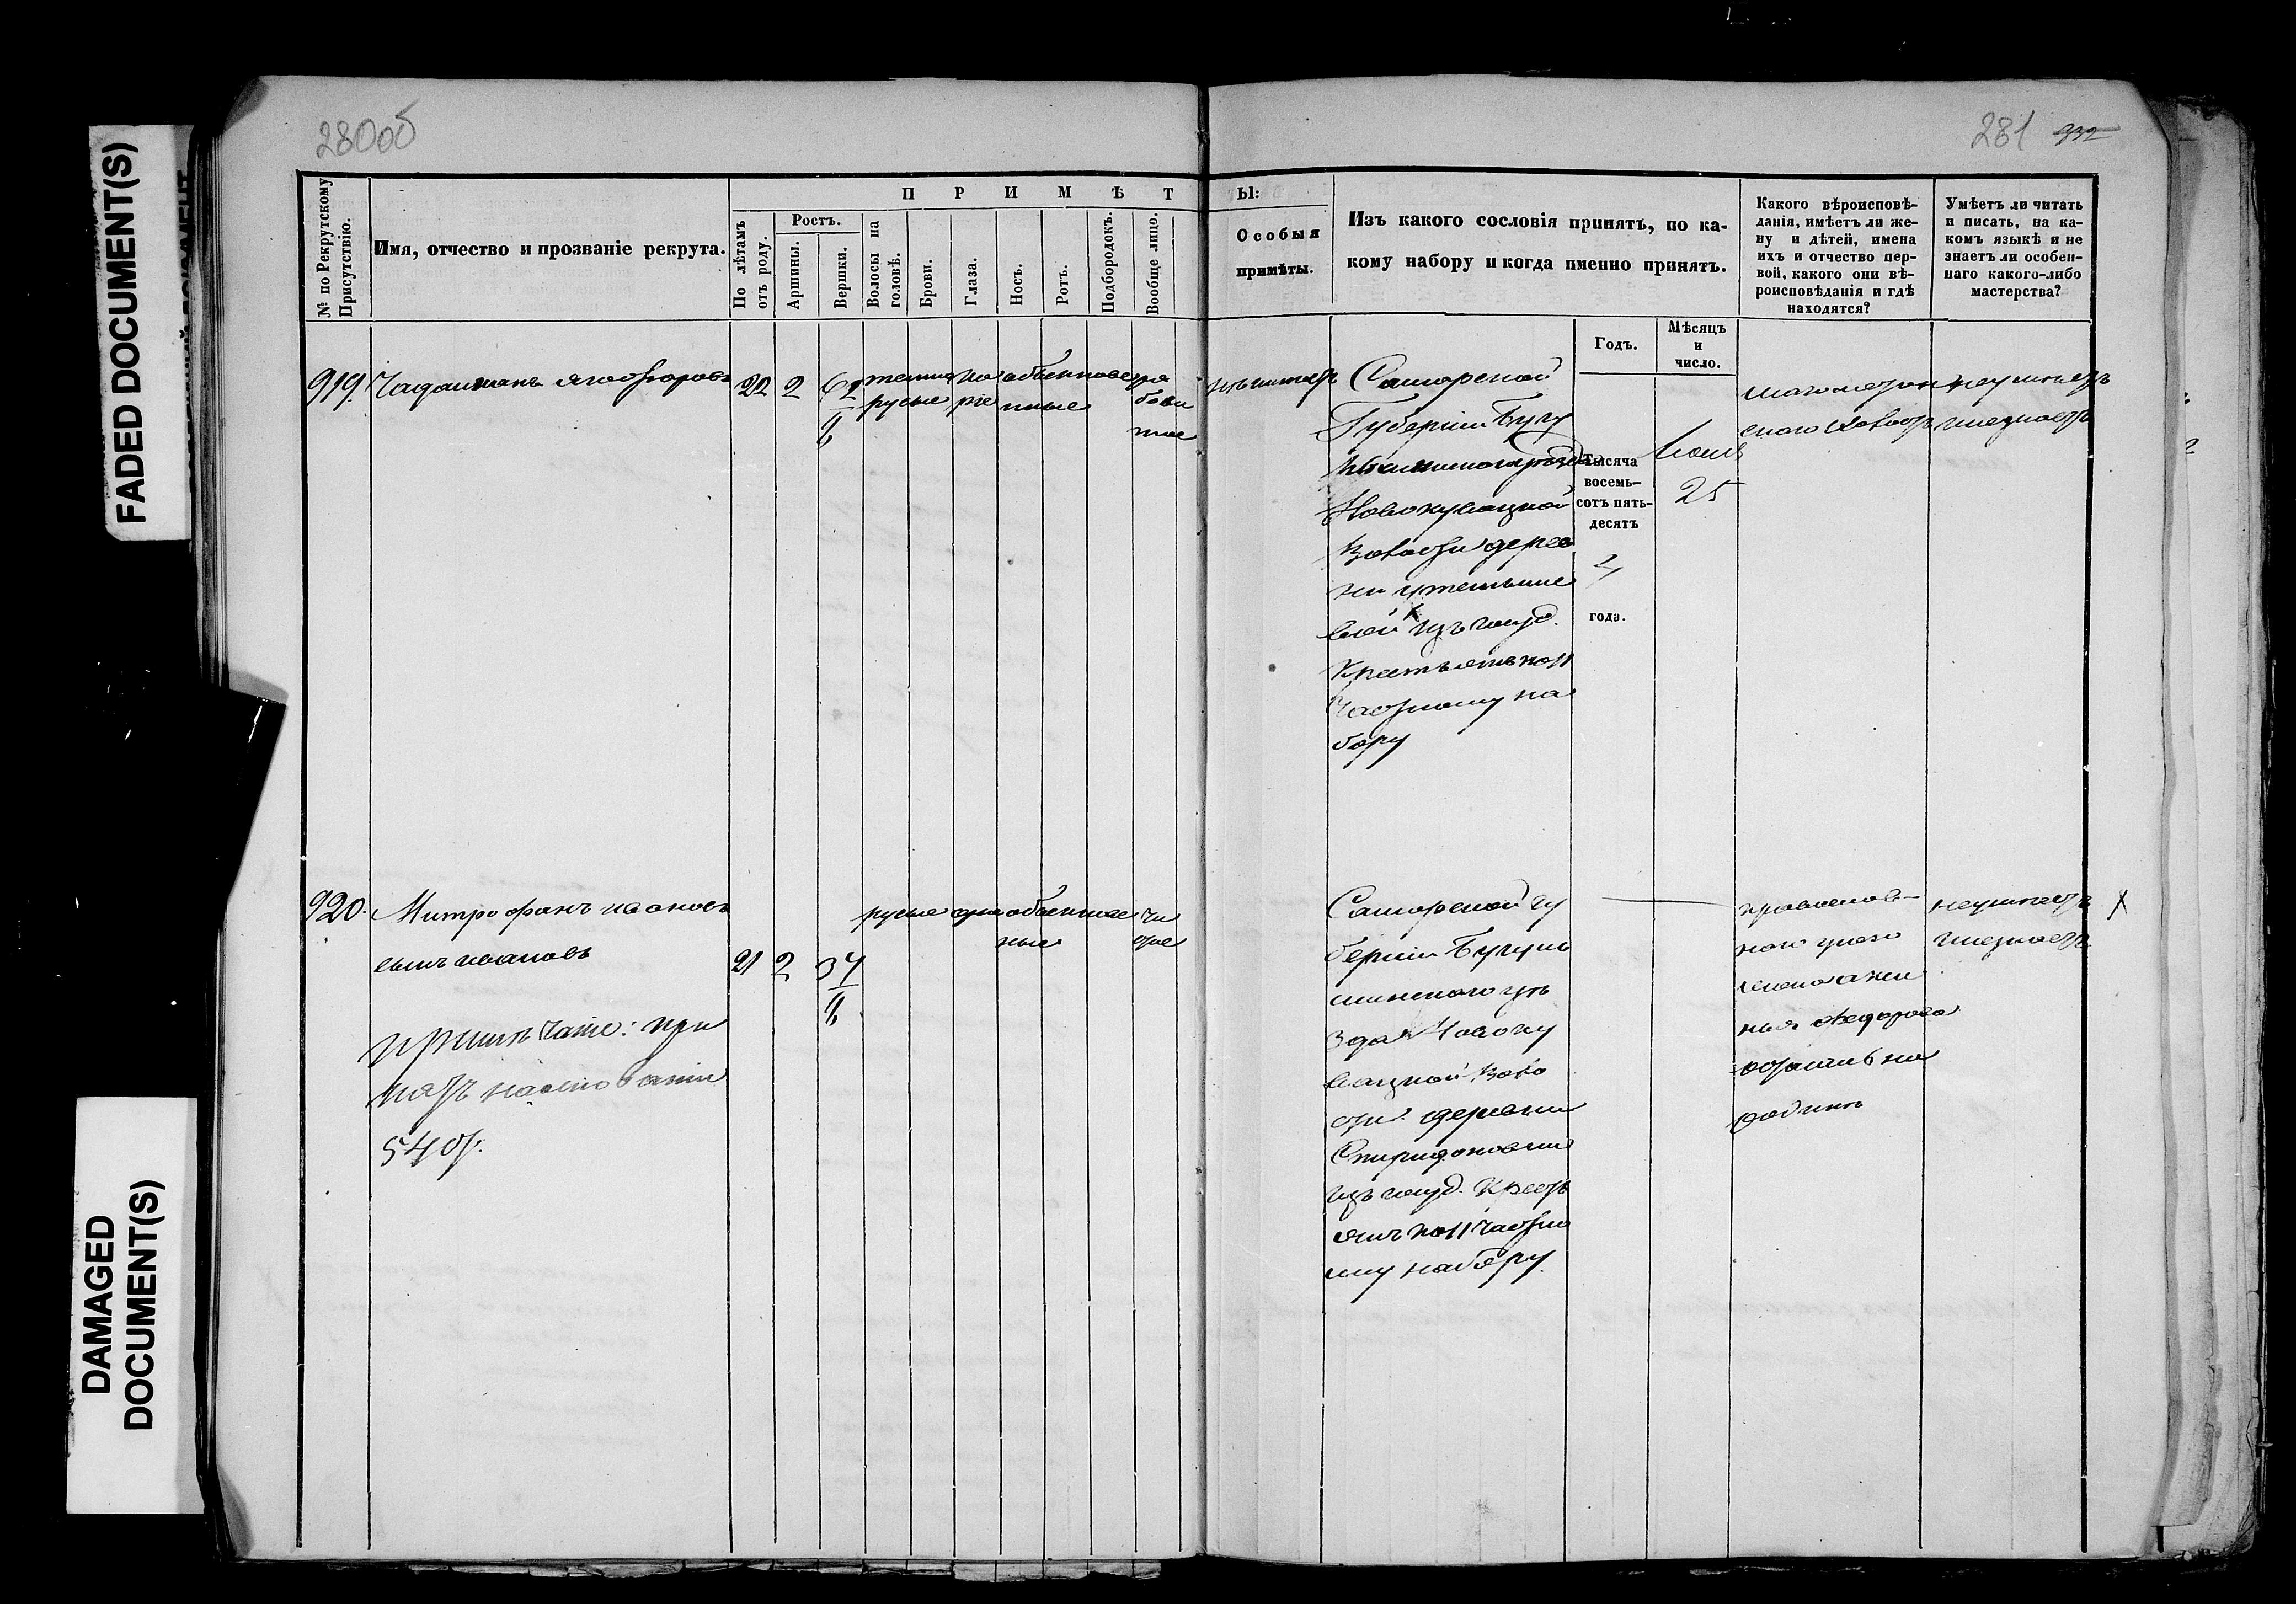 FADED DOCUMENT(S)
DAMAGED
DOCUMENT(S)
280об
281 932
№ по Рекрутскому
Присутствію.
Имя, отчество и прозваніе рекрута.
ПРИМѢТ
Ы:
По лѣтамъ
отъ роду.
Ростъ.
Аршины.
Вершки.
Волосы на
головѣ.
Брови.
Глаза.
Носъ.
Ротъ.
Подбородокъ.
Вообще лицо.
Особыя
примѣты.
Изъ какого сословія принятъ, по ка-
кому набору и когда именно принятъ.
Годъ.
Мѣсяцъ
и
число.
Какого вѣроисповѣ-
данія, имѣетъ ли же-
ну и дѣтей, имена
ихъ и отчество пер-
вой, какого они вѣ-
роисповѣданія и гдѣ
находятся?
Умѣетъ ли читать
и писать, на ка-
комъ языкѣ и не
знаетъ ли особен-
наго какого-либо
мастерства?
919.
22
2
6 2/8
темно
русые
ка
ріе
обыкновен
ные
ря
бова
тое
Самарской
Губерніи Бугу
Новокувацкой
Волости дерев
ни
вой изъ госуд.
Крестьянъ по 11
Частному на
бору
Тысяча
восемь-
сотъ пять-
десятъ
4
года.
Іюня
25
магометан
скаго холостъ
неумѣетъ
инезнаетъ
920.
Митрофанъ Ивановъ
сынъ Ивановъ
примѣчаніе: при
нятъ наосновании
540 ст.
21
2
3 4/8
русые
обыкновен
ные
чи
стое
Самарской гу
берніи Бугуль
минскаго уѣ
зда Новоку
вацкой Воло
сти деревни
Спиридоновки
изъ госуд. Крестъ
янъ по 11 частно
му набору.
православ-
наго
жена
Федорова
осталась на
родинѣ
неумѣетъ
инезнаетъ
X